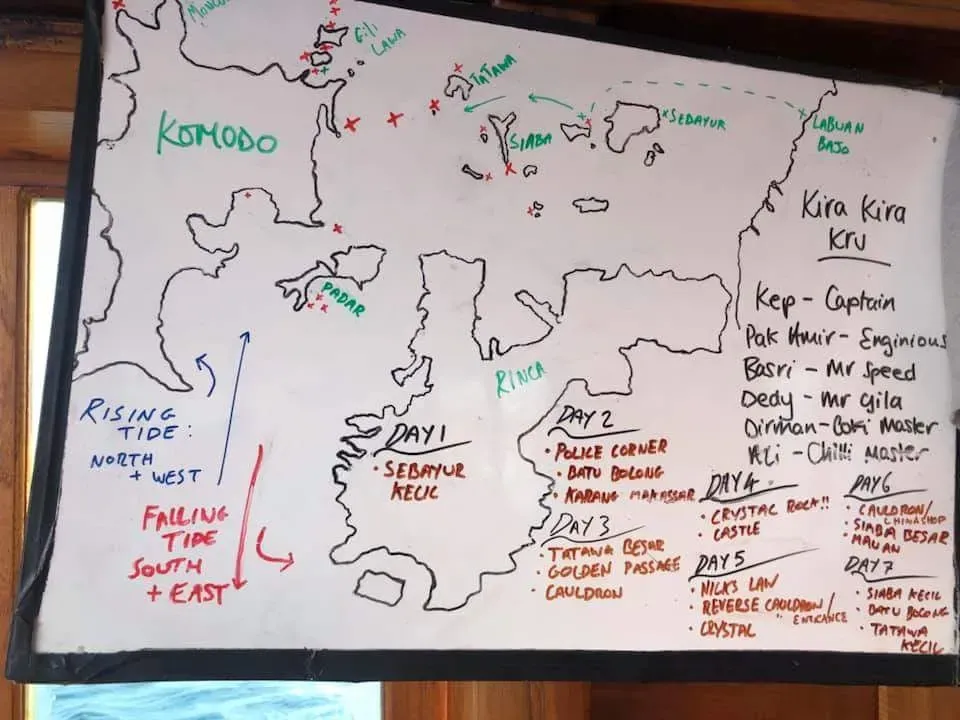 GILI
LAWA
TATAWA
KOMODO
SIABA
SEDAYUR
LABUAN
BAJO
PADAR
RINCA
Kira Kira
Kru
Kep - Captain
Pak Amir - Enginious
Basri - Mr Speed
Dedy - Mr Gila
Dirman - Coki Master
Ali - Chilli Master
RISING
TIDE:
NORTH
+ WEST
FALLING
TIDE
SOUTH
+ EAST
DAY 1
• SEBAYUR
KECIC
DAY 2
• POLICE CORNER
• BATU BOLONG
• KARANG MAKASSAR
DAY 3
• TATAWA BESAR
• GOLDEN PASSAGE
• CAULDRON
DAY 4
• CRYSTAL ROCK!!
• CASTLE
DAY 5
• NICKS LAW
• REVERSE CAULDRON/
" ENTRANCE
• CRYSTAL
DAY 6
• CAULDRON/
CHINASHOP
• SIABA BESAR
• MAWAN
DAY 7
• SIABA KECIL
• BATU BOLONG
• TATAWA
KECIL